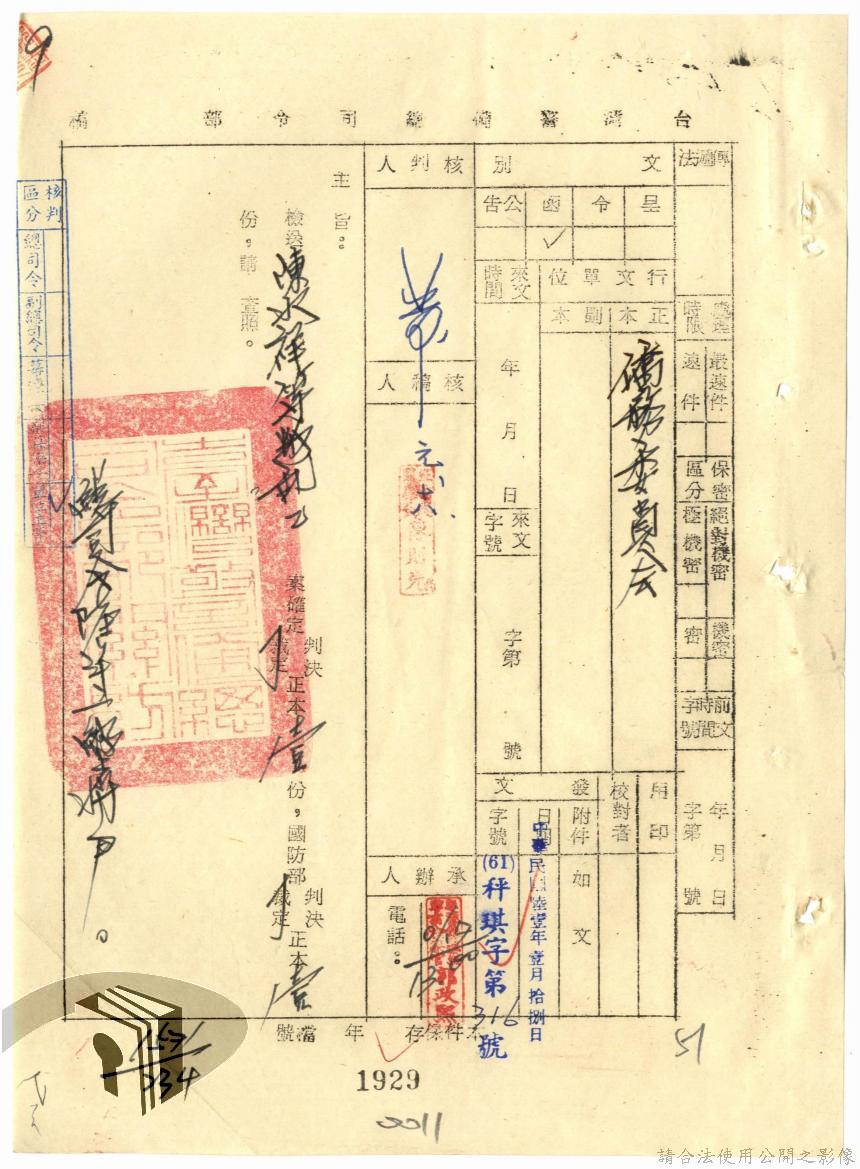 台灣警備總司令部 稿
傳遞法
處理時限
最速件
速件
保密區分
絕對機密
極機密
機密
密
前文時間字號
年月日
字第 號
文別
呈
令
函
公告
✓
行文單位
正本
副本
僑務委員会
來文時間
年月日
來文字號
字第 號
用印
校對者
發文
附件
如文
日期
中華民國陸壹年壹月拾捌日
字號
(61)秤琪字第316號
核判人
核稿人
元.六.
承辦人
電話:
主旨:
檢送陳水祥等叛乱乙案確定判決裁定正本壹份,國防部判決裁定正本壹份,請查照。
核判區分
總司令
副總司令
本件保存 年 檔號
1571/334
1929
0011
51
9
請合法使用公開之影像